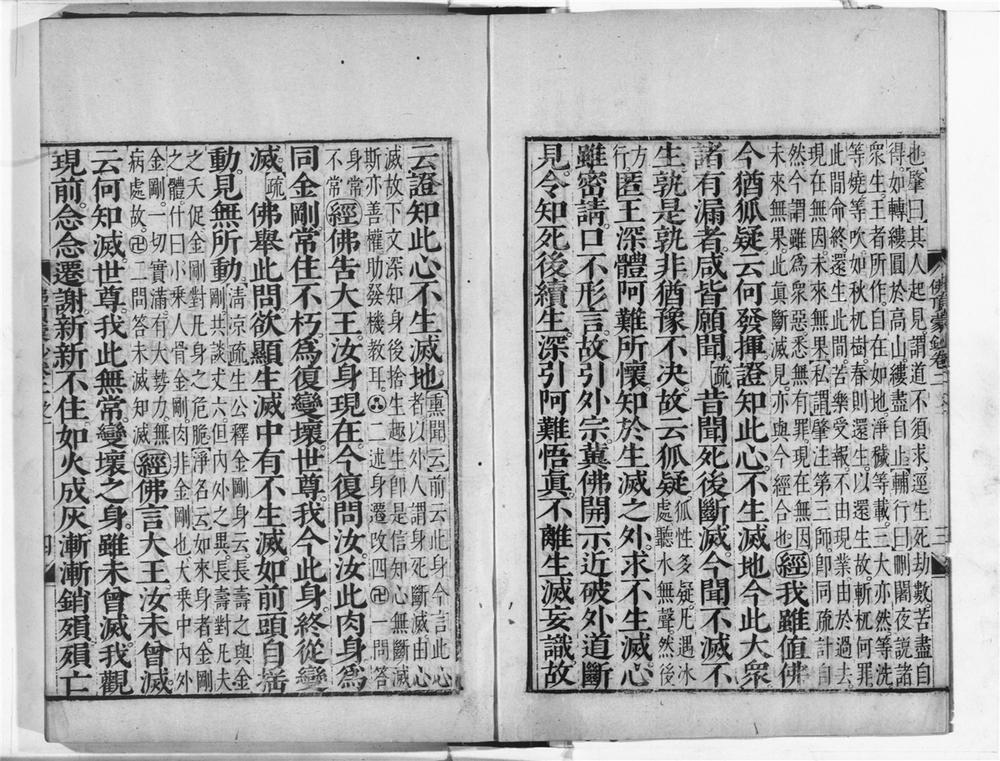 也【肇曰】其人起見謂道不須求逕生死劫數苦盡自
得如轉縷圓於高山縷盡自止【輔行曰】刪闍夜說諸
衆生王者所作自在如地淨穢等載三大亦然等洗
等燒等吹如秋杌樹春則還生以還生故斬杌何罪
此間命終還生此間苦樂受報不由現業由於過去
現在無因未來無果【私謂】肇注第三師卽同疏計自
然今謂雖爲衆惡悉無有罪現在無因
未來無果此眞斷滅見亦與今經合也
經我雖值佛
今猶狐疑云何發揮證知此心不生滅地今此大衆
諸有漏者咸皆願聞疏昔聞死後斷滅今聞不滅不
生孰是孰非猶豫不决故云狐疑
狐性多疑凡遇冰
處聽水無聲然後
方
行
匿王深體阿難所懷知於生滅之外求不生滅心
雖密請口不形言故引外宗冀佛開示近破外道斷
見令知死後續生深引阿難悟眞不離生滅妄識故
佛頂蒙鈔卷二之一
三
云證知此心不生滅地
熏聞云前云此身今言此心
者以外人謂身死斷滅由心
滅故下文深知身後捨生趣生卽是信知心無斷滅
斯亦善權助發機教耳二述身遷改四卍一問答
身常
不常
經佛告大王汝身現在今復問汝汝此肉身爲
同金剛常住不朽爲復變壞世尊我今此身終從變
滅疏佛舉此問欲顯生滅中有不生滅如前頭自搖
動見無所動
清京疏生公釋金剛身云長壽之與金
剛共談丈六但內外之異長壽對凡夫
之夭促金剛對凡身之危脆淨名云如來身者金剛
之體什曰小乘人骨金剛肉非金剛也大乘中內外
金剛一切實滿有大勢力無
病處故卍二問答未滅知滅
經佛言大王汝未曾滅
云何知滅世尊我此無常變壞之身雖未曾滅我觀
現前念念遷謝新新不住如火成灰漸漸銷殞殞亡
四